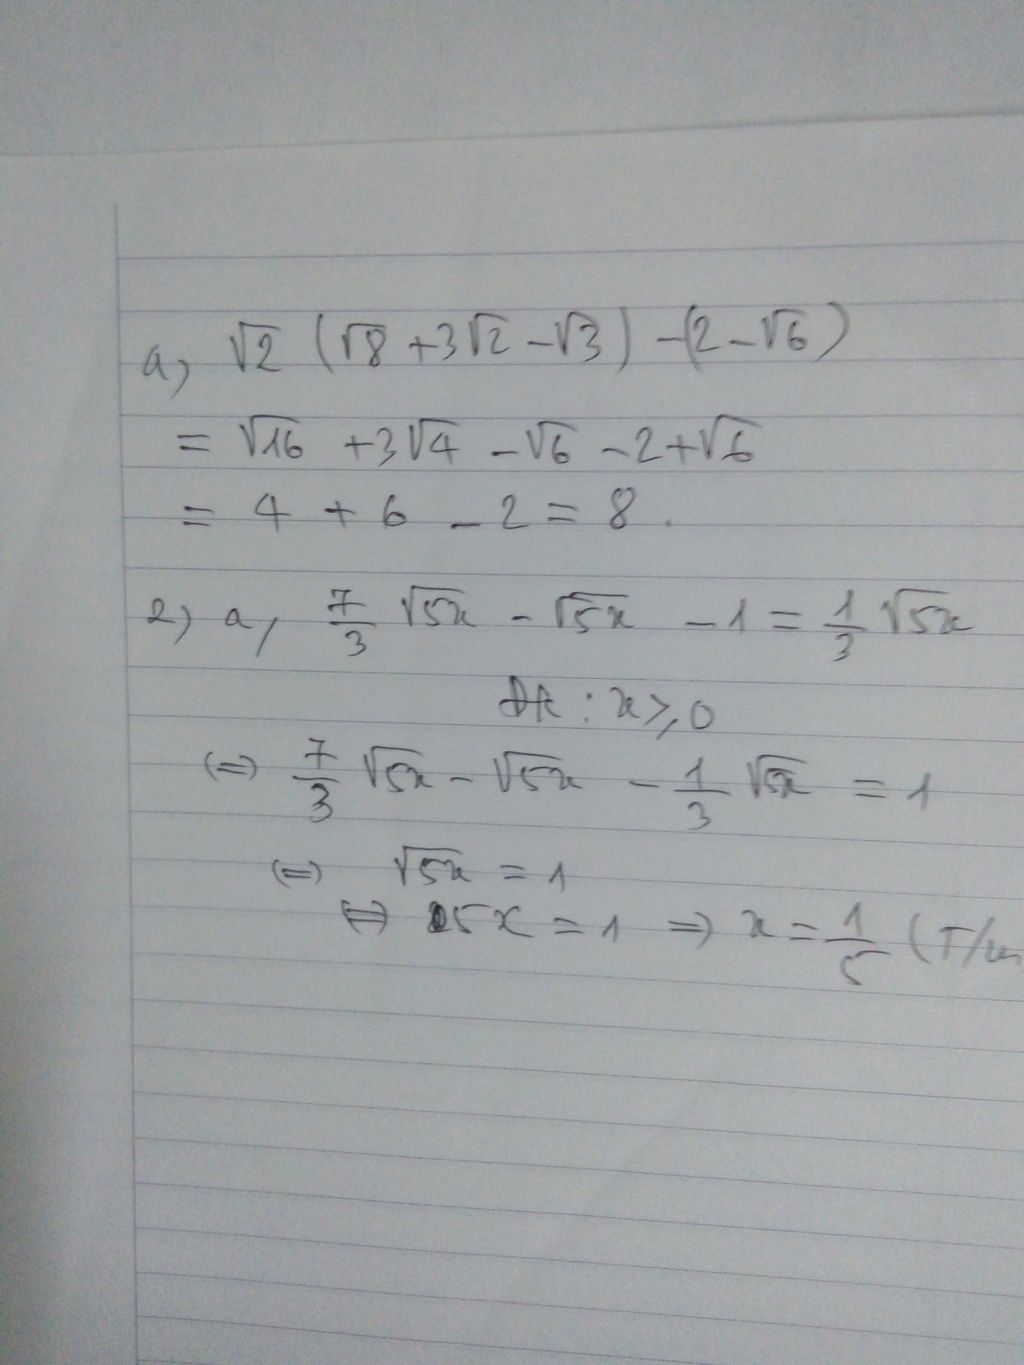 a, √2 (√8 + 3√2 - √3) - (2 - √6)
= √16 + 3√4 - √6 - 2 + √6
= 4 + 6 - 2 = 8.
2) a, 7/3 √5x - √5x - 1 = 1/3 √5x
Đk : x ≥ 0
(=) 7/3 √5x - √5x - 1/3 √5x = 1
(=) √5x = 1
(=) 5x = 1 => x = 1/5 (T/m